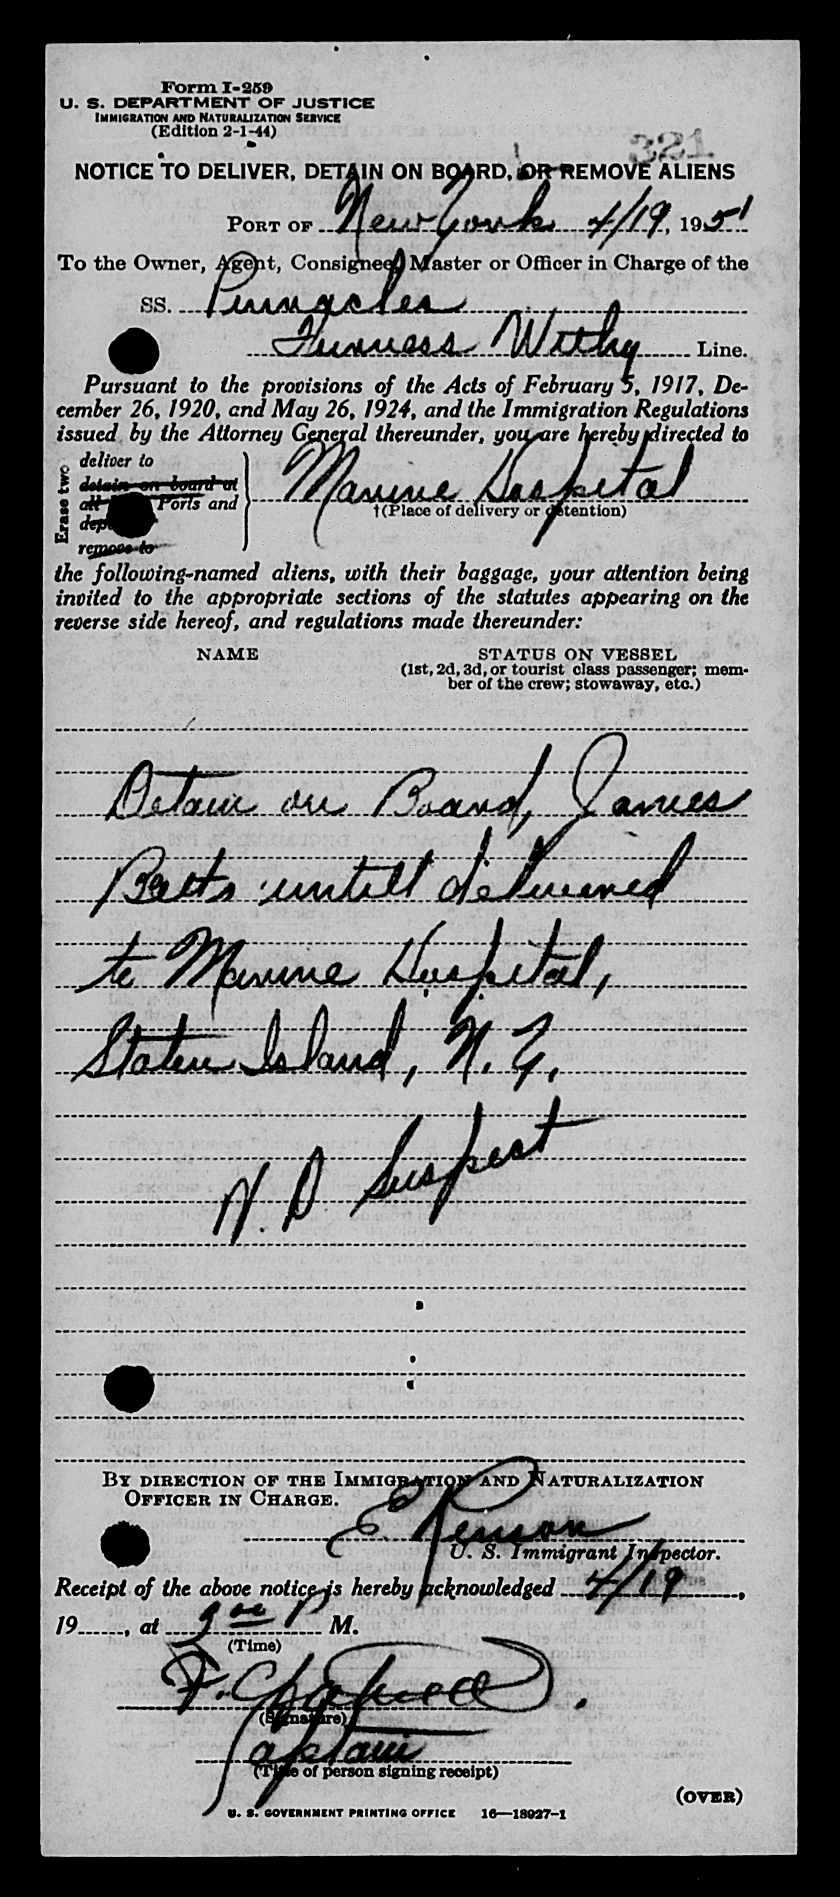 Form I-259
U. S. DEPARTMENT OF JUSTICE
IMMIGRATION AND NATURALIZATION SERVICE
(Edition 2-1-44)
321
NOTICE TO DELIVER, DETAIN ON BOARD, OR REMOVE ALIENS
PORT OF New York 4/19, 1951
To the Owner, Agent, Consignee, Master or Officer in Charge of the
SS. Pinnacles
Furness Withy Line.
Pursuant to the provisions of the Acts of February 5, 1917, De-
cember 26, 1920, and May 26, 1924, and the Immigration Regulations
issued by the Attorney General thereunder, you are hereby directed to
Erase two
deliver to
detain on board at
all Ports and
remove to
Marine Hospital
†(Place of delivery or detention)
the following-named aliens, with their baggage, your attention being
invited to the appropriate sections of the statutes appearing on the
reverse side hereof, and regulations made thereunder:
NAME STATUS ON VESSEL
(1st, 2d, 3d, or tourist class passenger; mem-
ber of the crew; stowaway, etc.)
Detain on Board, James
Betts untill delivered
to Marine Hospital,
Staten Island, N. Y.
V. D Suspect
BY DIRECTION OF THE IMMIGRATION AND NATURALIZATION
OFFICER IN CHARGE.
E.
U. S. Immigrant Inspector.
Receipt of the above notice is hereby acknowledged 4/19,
19, at P M.
(Time)
F.
(Signature)
Captain
(Title of person signing receipt)
(OVER)
U. S. GOVERNMENT PRINTING OFFICE 16—18927-1